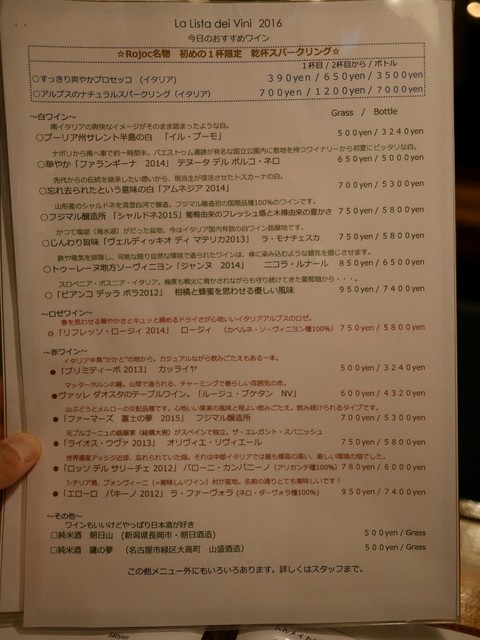 La Lista dei Vini 2016
今日のおすすめワイン
☆Rojoc名物 初めの1杯限定 乾杯スパークリング☆
1杯目 / 2杯目から / ボトル
○すっきり爽やかプロセッコ (イタリア) 390yen / 650yen / 3500yen
○アルプスのナチュラルスパークリング (イタリア) 700yen / 1200yen / 7000yen
～白ワイン～ Grass / Bottle
南イタリアの爽快なイメージがそのまま詰まったような白。
○プーリア州サレント半島の白 「イル・ブーモ」 500yen / 3240yen
ナポリから南へ車で約一時間半。パエストゥム遺跡が有名な国立公園内に敷地を持つワイナリーから初夏にピッタリな白。
○華やか「ファランギーナ 2014」 テヌータ デル ポルコ・ネロ 650yen / 5000yen
先代からの伝統を継承したい想いから、現当主が復活させたトスカーナの白。
○忘れ去られたという意味の白「アムネジア 2014」 700yen / 5300yen
山形産のシャルドネを清澄白河で醸造。フジマル醸造初の国際品種100%のワインです。
○フジマル醸造所 「シャルドネ2015」葡萄由来のフレッシュ感と木樽由来の豊かさ 750yen / 5800yen
かつて塩湖（海水湖）がだった盆地。今はイタリア国内有数の白ワイン銘醸地です。
○じんわり旨味「ヴェルディッキオ ディ マテリカ2013」 ラ・モナチェスカ 750yen / 5800yen
鉄や電気を排除し、可能な限り自然な環境で造られたワインは、体に染み込むような錯覚を感じさせます。
○トゥーレーヌ地方ソーヴィニヨン「ジャンヌ 2014」 ニコラ・ルナール 850yen / 6500yen
スロベニア・ボスニア・イタリア。幾度も戦火に脅かされながらも守り続けてきた葡萄畑から・・・。
○「ビアンコ デッラ ボラ2012」 柑橘と蜂蜜を思わせる優しい風味 950yen / 7400yen
～ロゼワイン～
春を思わせる華やかさとキュッと締めるドライさが心地いいイタリアアルプスのロゼ。
○「リフレッソ・ロージィ 2014」 ロージィ (カベルネ・ソーヴィニヨン種100%) 750yen / 5800yen
～赤ワイン～
イタリア半島"かかと"の地から。カジュアルながら飲みごたえもある一本。
●「プリミティーボ 2013」 カッライヤ 500yen / 3240yen
マッターホルンの麓。山間で造られる、チャーミングで春らしい雰囲気の赤。
●ヴァッレ ダオスタのテーブルワイン。「ルージュ・ブケタン NV」 600yen / 4320yen
山ぶどうとメルローの交配品種です。心地いい果実の風味と程よい飲みごたえ。飲み続けられるタイプです。
●「ファーマーズ 富士の夢 2015」 フジマル醸造所 700yen / 5300yen
元ブルゴーニュの醸造家（結構大男）がスペインで独立。ザ・エレガント・スパニッシュ
●「ライオス・ウヴァ 2013」 オリヴィエ・リヴィエール 750yen / 5800yen
世界遺産アッシジ近郊、忘れられていた畑。それは中部イタリアでは最も標高の高い、厳しい環境の畑でした。
●「ロッソ デル サリーチェ 2012」 バローニ・カンパニーノ (アリカンテ種100%) 780yen / 6000yen
シチリア島、ブォンヴィーニ（=美味しいワイン）村が産地。名前の通りとても美味しいです！
●「エローロ パキーノ 2012」 ラ・ファーヴォラ (ネロ・ダーヴォラ種100%) 950yen / 7400yen
～その他～
ワインもいいけどやっぱり日本酒が好き
□純米酒 朝日山 (新潟県長岡市・朝日酒造) 500yen / Grass
□純米酒 鷹の夢 (名古屋市緑区大高町 山盛酒造) 500yen / Grass
この他メニュー外にもいろいろあります。詳しくはスタッフまで。